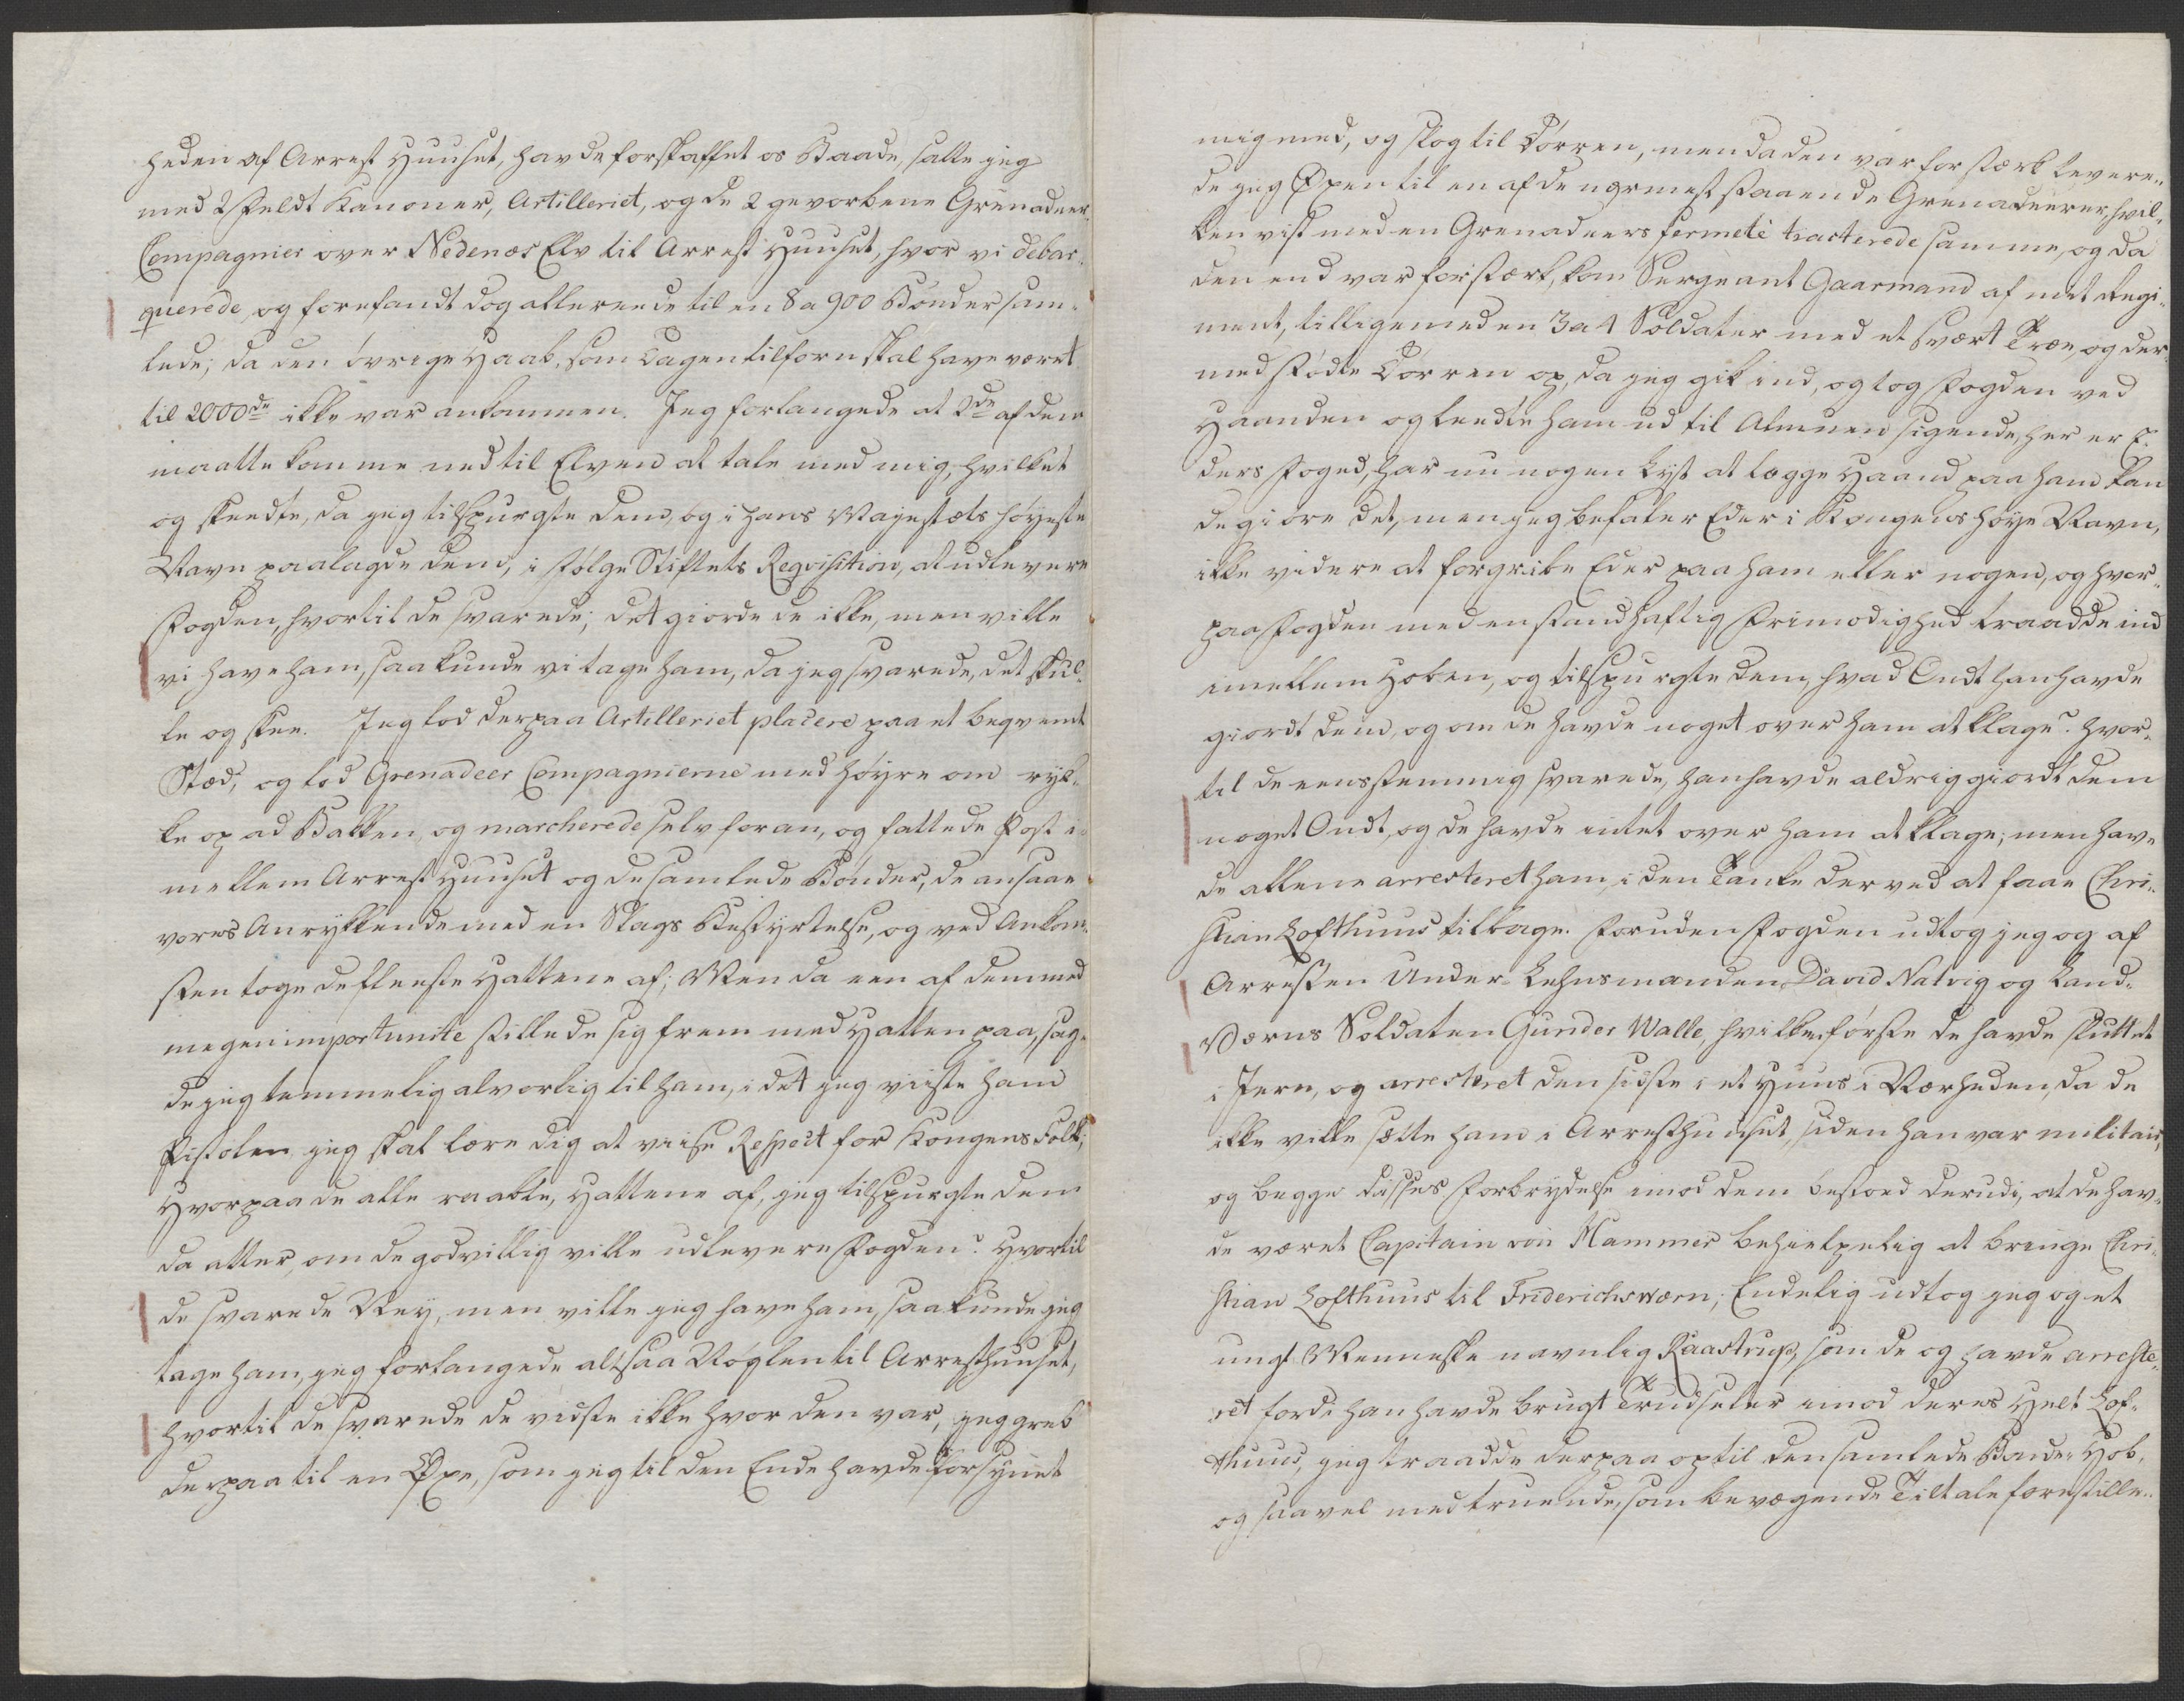 heden af Arrest Huuset, havde forskaffet os Baade, satte jeg
med 2 Feldt Kanoner, Artilleriet, og de 2 gevorbene Grenadeer
Compagnier over Nedenæs Elv til Arrest Huuset, hvor vi debar-
querede, og forefandt dog allereede til en 8 a 900 Bønder sam-
lede; da den øvrige Hoab, som Dagen tilforn skal have været
til 2000de ikke var ankommen. Jeg forlangede at 2de af dem
maatte komme ned til Elven at tale med mig, hvilket
og skeedte, da jeg tilspurgte dem, og i Hans Majestæts høyeste
Navn paalagde dem, i Følge Stiftets Reqvisition, at udlevere
Fogden, hvortil de svarede; det giorde de ikke, men ville
vi have ham, saa kunde vi tage ham, da jeg svarede, det skul-
le og skee. Jeg lod derpaa Artilleriet placere paa et beqvemt
Stæd, og lod Grenadeer Compagnierne med høyre om ryk-
ke op ad Bakken, og marcherede selv foran, og fattede Post i-
mellem Arrest Huuset og de samlede Bønder, de ansaae
vores Anrykkende med en Slags Bestyrtelse, og ved Ankom-
sten toge de fleeste Hattene af; Men da een af dem med
megen importunite stillede sig frem med Hatten paa, sag-
de jeg temmelig alvorlig til ham, i det jeg viiste ham
Pistolen jeg skal lære dig at viise Respect for Kongens Folk;
Hvorpaa de alle raabte, Hattene af, jeg tilspurgte dem
da atter, om de godvillig ville udlevere Fogden? Hvortil
de svarede Ney, men ville jeg have ham, saa kunde jeg
tage ham, jeg forlangede altsaa Nøglen til Arresthuuset,
hvortil de svarede de vidste ikke hvor den var, jeg greb
derpaa til en Øxe, som jeg til den Ende havde forsynet
mig med, og slog til Dørren, men da den var for stærk levere-
de jeg Øxen til en af de nærmest staaende Grenadeerer, hvil-
ken vist med en Grenadeers fermeté tracterede samme, og da
den end var for stærk, kom Sergeant Gaarmand af mit Regi-
ment, tilligemed en 3 a 4 Soldater med et svært Træe, og der
med stødte Dørren op, da jeg gik ind, og tog Fogden ved
Haanden og leedte ham ud til Almuen sigende, her er E-
ders Foged, har nu nogen Lyst at lægge Haand paa ham kan
de giøre det, men jeg befaler Eder i Kongens høye Navn,
ikke videre at forgribe Eder paa ham eller nogen, og hvor-
paa Fogden med en standhaftig Frimodighed traadde ind
imellem Hoben, og tilspurgte dem, hvad Ondt han havde
giordt dem, og om de havde noget over ham at klage? hvor-
til de eensstemmig svarede, han havde aldrig giordt dem
noget Ondt, og de havde intet over ham at klage; men hav-
de allene arresteret ham, i den Tanke derved at faae Chri-
stian Lofthuus tilbage. Foruden Fogden udtog jeg og af
Arresten Under-Lehnsmanden David Natvig og Land-
Værns Soldaten Gunder Walle, hvilken første de havde sluttet
i Jern, og arresteret den sidste i et Huus i Nærheden, da de
ikke ville sætte ham i Arresthuuset, siden han var militair,
og begge disses Forbrydelse imod dem bestoed derudi, at de hav-
de været Capitain von Hammer behielpelig at bringe Chri-
stian Lofthuus til Friderichsværn; Endelig udtog jeg og et
ungt Menneske navnlig Raastrup, som de og havde arreste-
ret fordi han havde brugt Trudseler imod deres Helt Lof-
thuus, jeg traadde derpaa op til den samlede Bonde-Hob,
og saavel med truende, som bevægende Tiltale forestille-